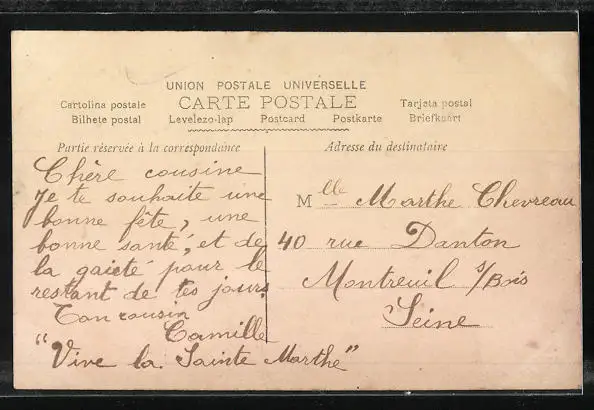 UNION POSTALE UNIVERSELLE
CARTE POSTALE
Cartolina postale Tarjeta postal
Bilhete postal Levelezo-lap Postcard Postkarte Briefkaart
Partie réservée à la correspondance
Adresse du destinataire
Chère cousine
Je te souhaite une
bonne fête, une
bonne santé, et de
la gaieté pour le
restant de tes jours
Ton cousin
Camille
"Vive la Sainte Marthe"
Mlle Marthe Chevreau
40 rue Danton
Montreuil s/Bois
Seine